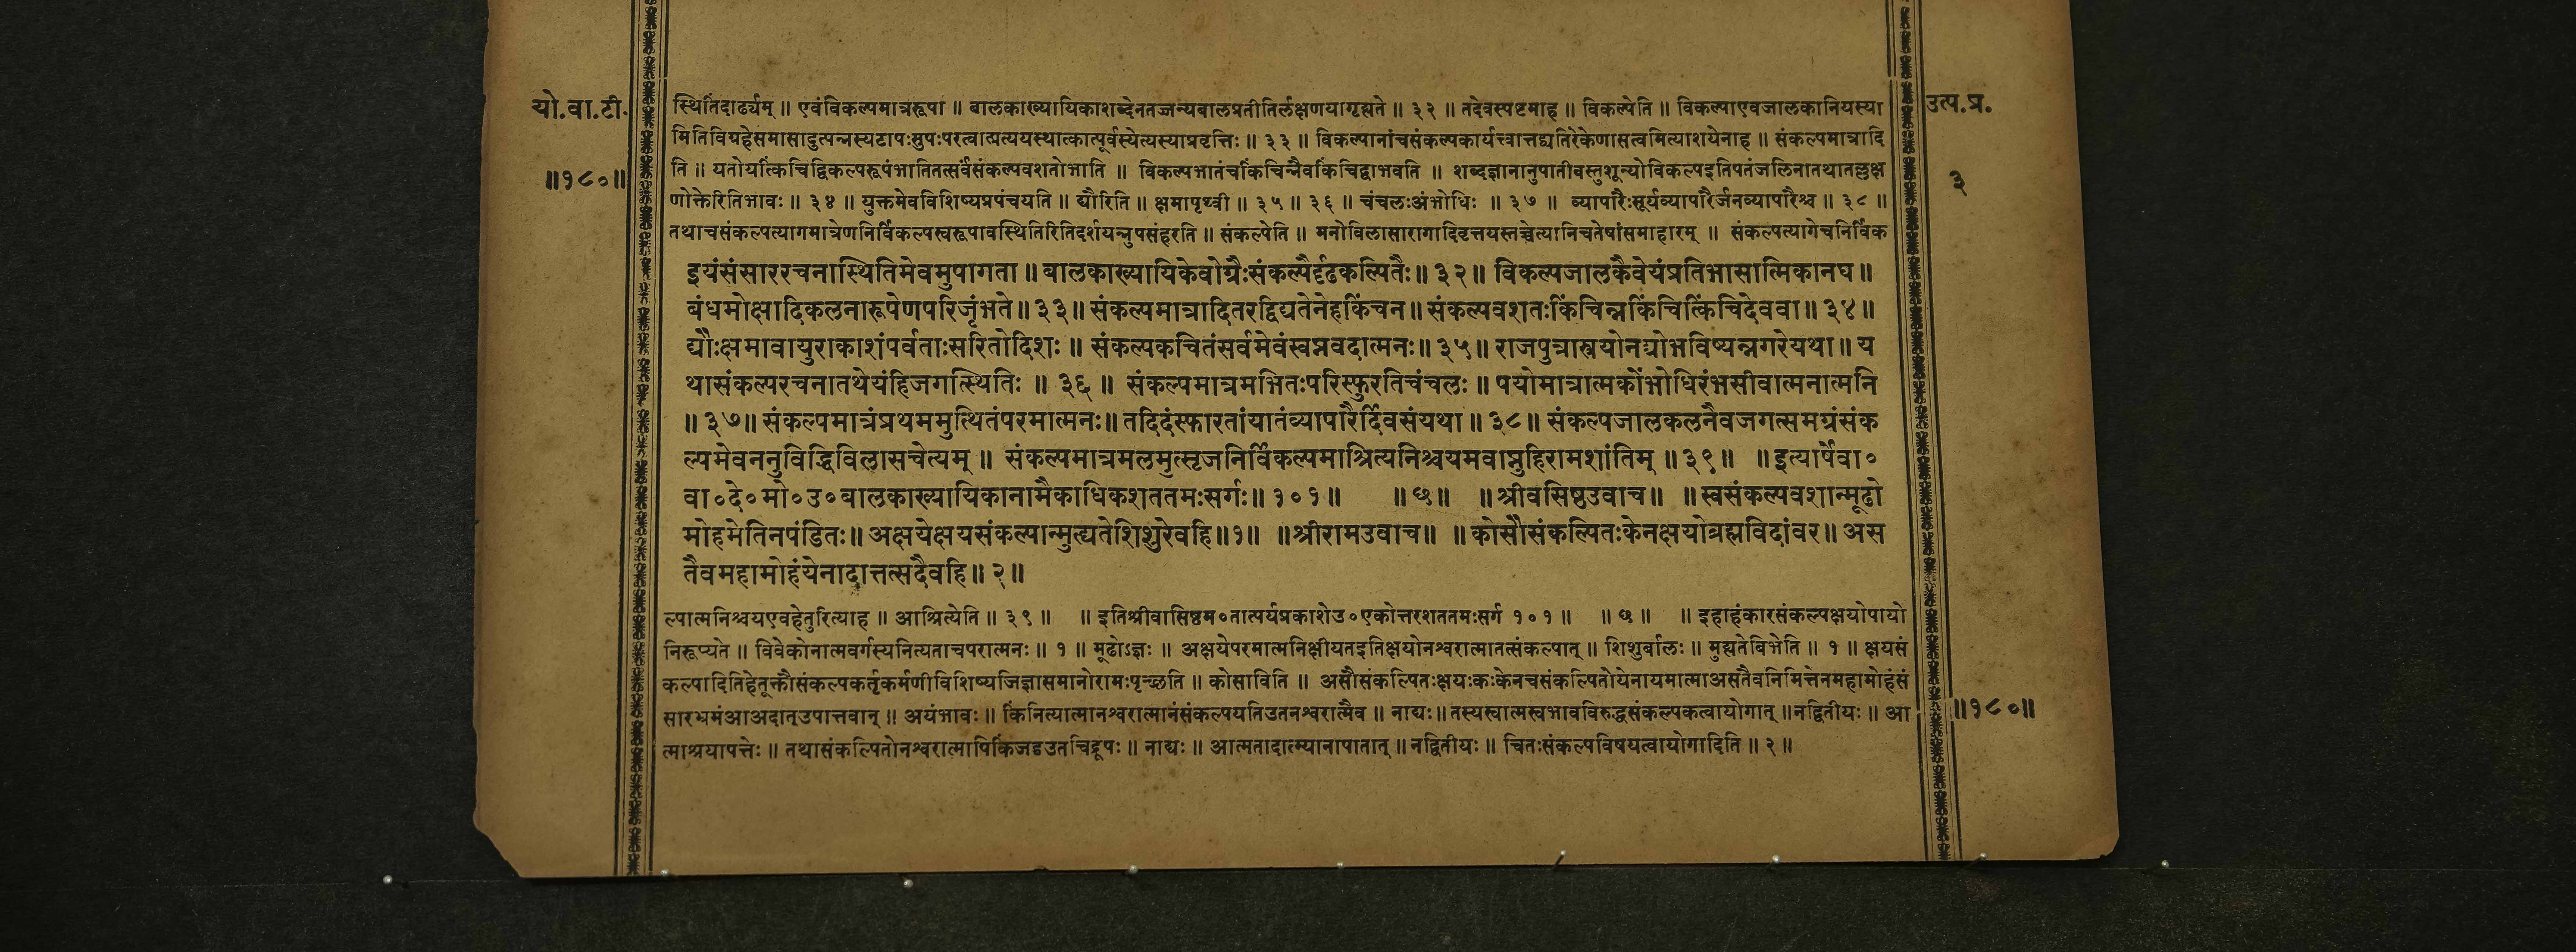 यो.वा.टी.
॥१८०॥
उत्प.प्र.
३
स्थितिदार्ढ्यम् ॥ एवंविकल्पमात्ररूपा ॥ बालकाख्यायिकाशब्देनतज्जन्यबालप्रतीतिर्लक्षणयागृह्यते ॥ ३२ ॥ तदेवस्पष्टमाह ॥ विकल्पेति ॥ विकल्पाएवजालकानियस्या
मितिविग्रहेसमासादुत्पन्नस्यटापःसुपःपरत्वात्प्रत्ययस्थात्कात्पूर्वस्येत्यस्याप्रवृत्तिः ॥ ३३ ॥ विकल्पानांचसंकल्पकार्यत्वात्तद्व्यतिरेकेणासत्वमित्याशयेनाह ॥ संकल्पमात्रादि
ति ॥ यतोयत्किंचिद्विकल्परूपंभातितत्सर्वंसंकल्पवशतोभाति ॥ विकल्पभातंचकिंचिन्नैवकिंचिद्वाभवति ॥ शब्दज्ञानानुपातीवस्तुशून्योविकल्पइतिपतंजलिनातथातल्लक्ष
णोक्तेरितिभावः ॥ ३४ ॥ युक्तमेवविशिष्यप्रपंचयति ॥ द्यौरिति ॥ क्षमापृथ्वी ॥ ३५ ॥ ३६ ॥ चंचलःअंभोधिः ॥ ३७ ॥ व्यापारैःसूर्यव्यापारैर्जनव्यापारैश्च ॥ ३८ ॥
तथाचसंकल्पत्यागमात्रेणनिर्विकल्पस्वरूपावस्थितिरितिदर्शयन्नुपसंहरति ॥ संकल्पेति ॥ मनोविलासारागादिवृत्तयस्तच्चेत्यानिचतेषांसमाहारम् ॥ संकल्पत्यागेचनिर्विक
इयंसंसाररचनास्थितिमेवमुपागता ॥ बालकाख्यायिकेवोग्रैःसंकल्पैर्दृढकल्पितैः ॥ ३२ ॥ विकल्पजालकैवेयंप्रतिभासात्मिकानघ ॥
बंधमोक्षादिकलनारूपेणपरिजृंभते ॥ ३३ ॥ संकल्पमात्रादितरद्विद्यतेनेहकिंचन ॥ संकल्पवशतःकिंचिन्नकिंचित्किंचिदेववा ॥ ३४ ॥
द्यौःक्षमावायुराकाशंपर्वताःसरितोदिशः ॥ संकल्पकचितंसर्वमेवंस्वप्नवदात्मनः ॥ ३५ ॥ राजपुत्रास्त्रयोनद्योभविष्यन्नगरेयथा ॥ य
थासंकल्परचनातथेयंहिजगत्स्थितिः ॥ ३६ ॥ संकल्पमात्रमभितःपरिस्फुरतिचंचलः ॥ पयोमात्रात्मकोंभोधिरंभसीवात्मनात्मनि
॥ ३७ ॥ संकल्पमात्रंप्रथममुत्थितंपरमात्मनः ॥ तदिदंस्फारतांयातंव्यापारैर्दिवसंयथा ॥ ३८ ॥ संकल्पजालकलनैवजगत्समग्रंसंक
ल्पमेवननुविद्धिविलासचेत्यम् ॥ संकल्पमात्रमलमुत्सृजनिर्विकल्पमाश्रित्यनिश्चयमवाप्नुहिरामशांतिम् ॥ ३९ ॥ ॥ इत्यार्षेवा०
वा०दे०मो०उ०बालकाख्यायिकानामैकाधिकशततमःसर्गः ॥ १०१ ॥ ॥ छ ॥ ॥ श्रीवसिष्ठउवाच ॥ ॥ स्वसंकल्पवशान्मूढो
मोहमेतिनपंडितः ॥ अक्षयेक्षयसंकल्पान्मुह्यतेशिशुरेवहि ॥ १ ॥ ॥ श्रीरामउवाच ॥ ॥ कोसौसंकल्पितःकेनक्षयोब्रह्मविदांवर ॥ अस
तैवमहामोहंयेनादात्तत्सदैवहि ॥ २ ॥
ल्पात्मनिश्चयएवहेतुरित्याह ॥ आश्रित्येति ॥ ३९ ॥ ॥ इतिश्रीवासिष्ठम०तात्पर्यप्रकाशेउ०एकोत्तरशततमःसर्ग १०१ ॥ ॥ छ ॥ ॥ इहाहंकारसंकल्पक्षयोपायो
निरूप्यते ॥ विवेकोनात्मवर्गस्यनित्यताचपरात्मनः ॥ १ ॥ मूढोऽज्ञः ॥ अक्षयेपरमात्मनिक्षीयतइतिक्षयोनश्वरात्मातत्संकल्पात् ॥ शिशुर्बालः ॥ मुह्यतेबिभेति ॥ १ ॥ क्षयसं
कल्पादितिहेतूक्तौसंकल्पकर्तृकर्मणीविशिष्यजिज्ञासमानोरामःपृच्छति ॥ कोसाविति ॥ असौसंकल्पितःक्षयःकःकेनचसंकल्पितोयेनायमात्माअसतैवनिमित्तेनमहामोहंसं
सारभ्रमंआअदात्उपात्तवान् ॥ अयंभावः ॥ किंनित्यात्मानश्वरात्मानंसंकल्पयतिउतनश्वरात्मैव ॥ नाद्यः ॥ तस्यस्वात्मस्वभावविरुद्धसंकल्पकत्वायोगात् ॥ नद्वितीयः ॥ आ
त्माश्रयापत्तेः ॥ तथासंकल्पितोनश्वरात्मापिकिंजडउतचिद्रूपः ॥ नाद्यः ॥ आत्मतादात्म्यानापातात् ॥ नद्वितीयः ॥ चितःसंकल्पविषयत्वायोगादिति ॥ २ ॥
॥१८०॥